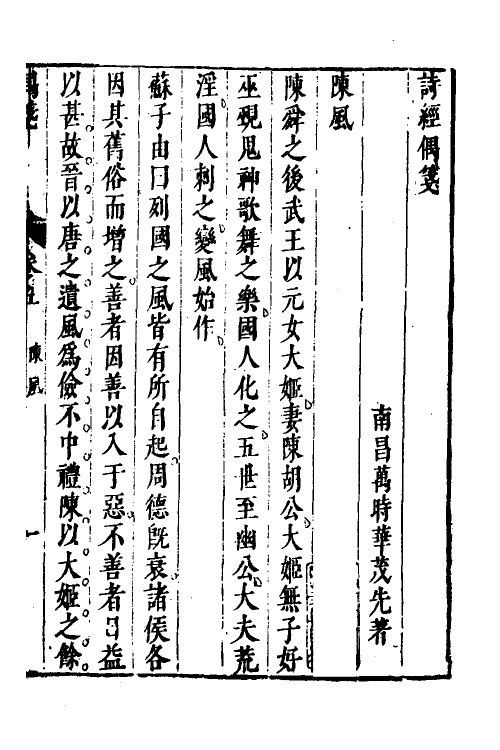 詩經偶箋
南昌萬時華茂先著
陳風
陳舜之後武王以元女大姬妻陳胡公大姬無子好
巫覡鬼神歌舞之樂國人化之五世至幽公大夫荒
淫國人刺之變風始作
蘇子由曰列國之風皆有所自起周德既衰諸侯各
因其舊俗而增之善者因善以入于惡不善者日益
以甚故晉以唐之遺風爲儉不中禮陳以大姬之餘
陳風
一